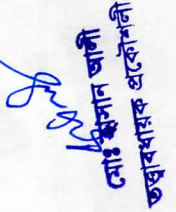 মোঃ হাসান আলী
তত্ত্বাবধায়ক প্রকৌশলী